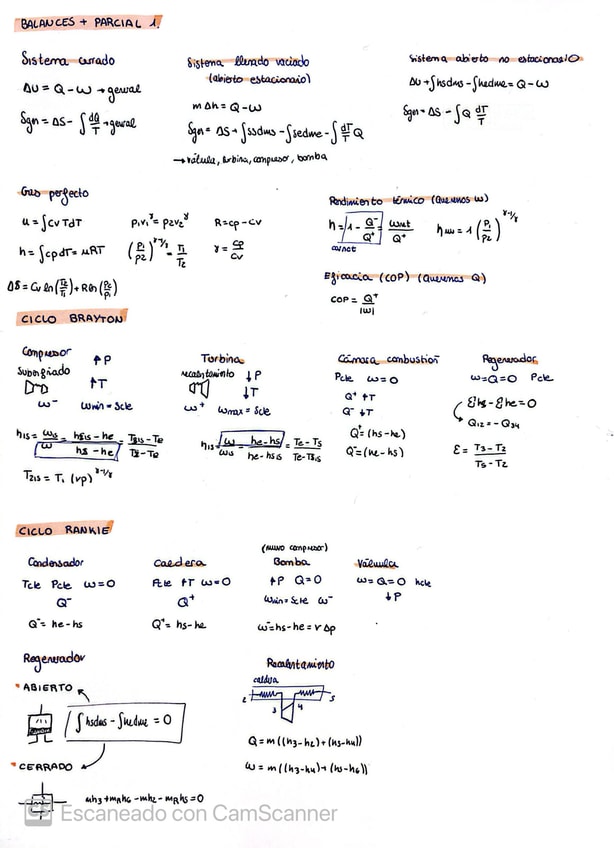 BALANCES + PARCIAL 1.
Sistema cerrado
ΔU = Q - W → general
Sgen = ΔS - ∫ dQ/T → general
Sistema llenado vaciado
(abierto estacionario)
m Δh = Q - W
Sgen = ΔS + ∫ssdms - ∫sedme - ∫ dT/T Q
→ válvula, turbina, compresor, bomba
Sistema abierto no estacionario
ΔU + ∫hsdms - ∫hedme = Q - W
Sgen = ΔS - ∫Q dT/T
Gas perfecto
u = ∫Cv T dT
h = ∫cpdT = uRT
ΔS = Cv ln(T2/T1) + R ln(P2/P1)
P1V1^γ = P2V2^γ
(P1/P2)^γ-1/γ = T1/T2
R = Cp - Cv
γ = Cp/Cv
Rendimiento térmico (Queremos W)
η = 1 - Q⁻/Q⁺ = Wnet/Q⁺
carnot
= 1 (P1/P2)^γ-1/γ
Eficacia (COP) (Queremos Q)
COP = Q⁺/|W|
CICLO BRAYTON
Compresor
↑P
↑T
W⁻ Wmin = Scte
ηis = Ws/W = hsis - he/hs - he = Tsis - Te/Ts - Te
T2is = T1 (rp)^γ-1/γ
Turbina
recalentamiento ↓P
↓T
W⁺ Wmax = Scte
ηis = W/Ws = he - hs/he - hsis = Te - Ts/Te - Tsis
Cámara combustión
Pcte W = 0
Q⁺ ↑T
Q⁻ ↓T
Q⁺ = (hs - he)
Q⁻ = (he - hs)
Regenerador
W = Q = 0 Pcte
Σhs - Σhe = 0
Q12 = - Q34
ε = T3 - T2/T5 - T2
CICLO RANKIE
Condensador
Tcte Pcte W = 0
Q⁻
Q⁻ = he - hs
Caldera
Pcte ↑T W = 0
Q⁺
Q⁺ = hs - he
(nuevo compresor)
Bomba
↑P Q = 0
Wmin = Scte W⁻
W⁻ = hs - he = v Δp
Válvula
W = Q = 0 hcte
↓P
Regenerador
• ABIERTO
∫hsdms - ∫hedme = 0
• CERRADO
mh3 + mRh6 - mh2 - mRh5 = 0
Recalentamiento
caldera
2 3 4 5
Q = m ((h3 - h2) + (h5 - h4))
W = m ((h3 - h4) + (h5 - h6))
CS Escaneado con CamScanner